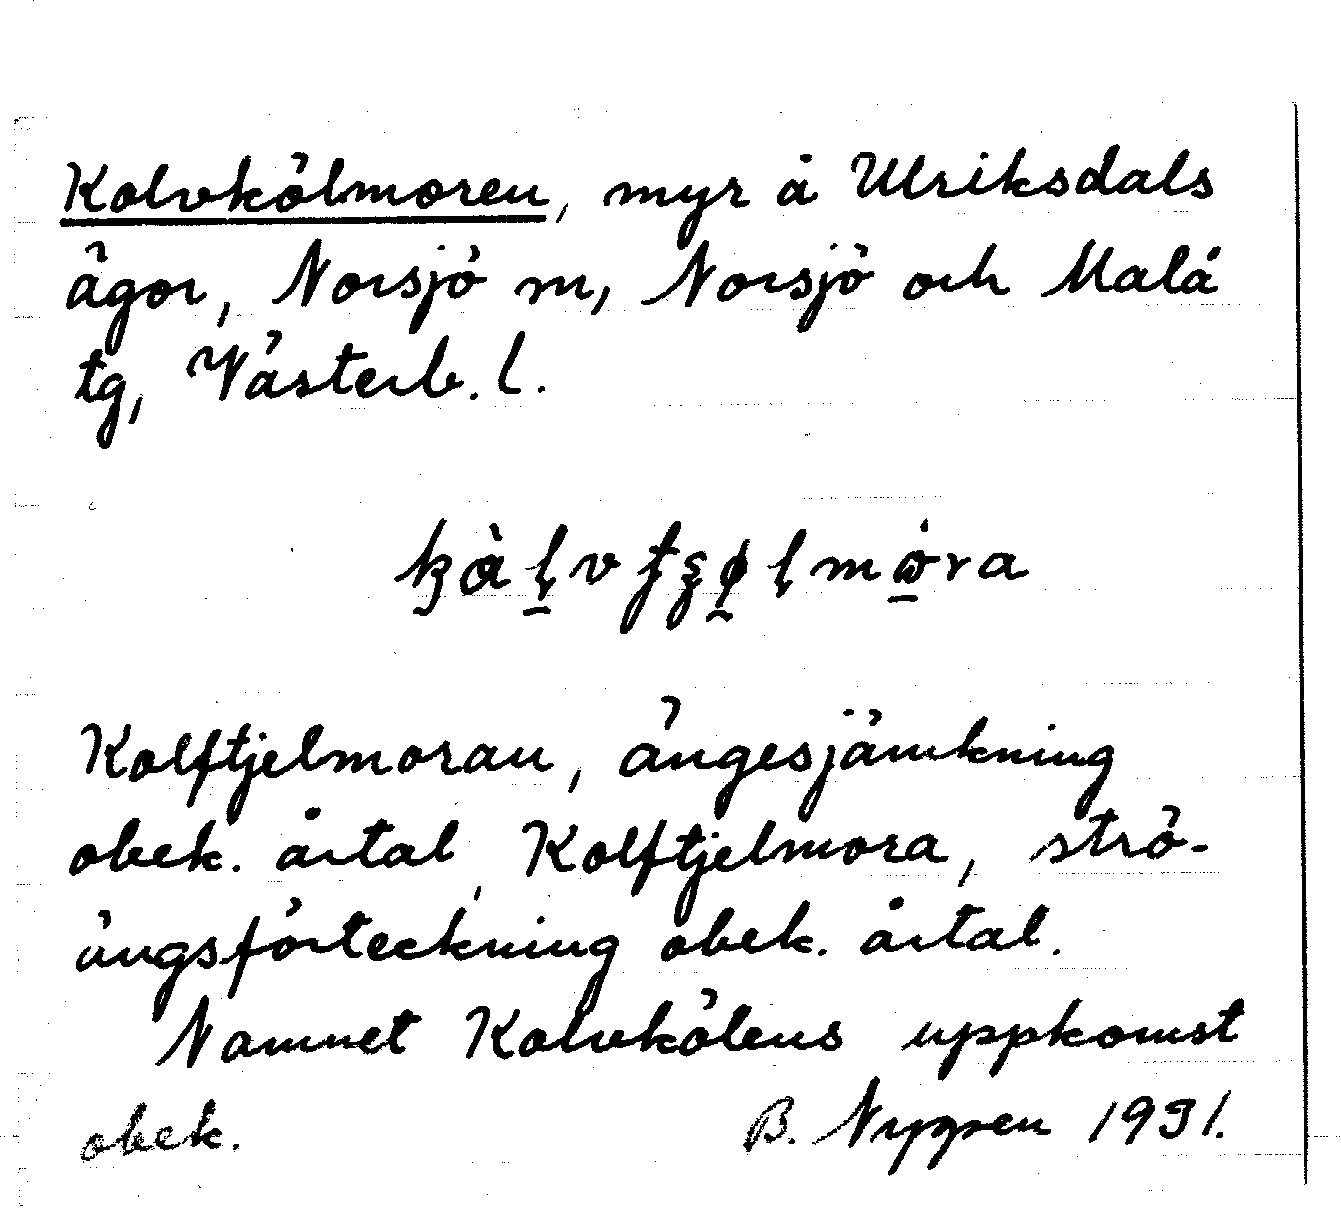 Kolvkölmoren, myr å Ulriksdals
ägor, Norsjö sn, Norsjö och Malå
tg, Västerb. l.
Kolftjelmoran, ängesjämkning
obek. årtal, Kolftjelmora, strö-
ängsförteckning obek. årtal.
Namnet Kolvkölens uppkomst
obek. B. Nygren 1931.